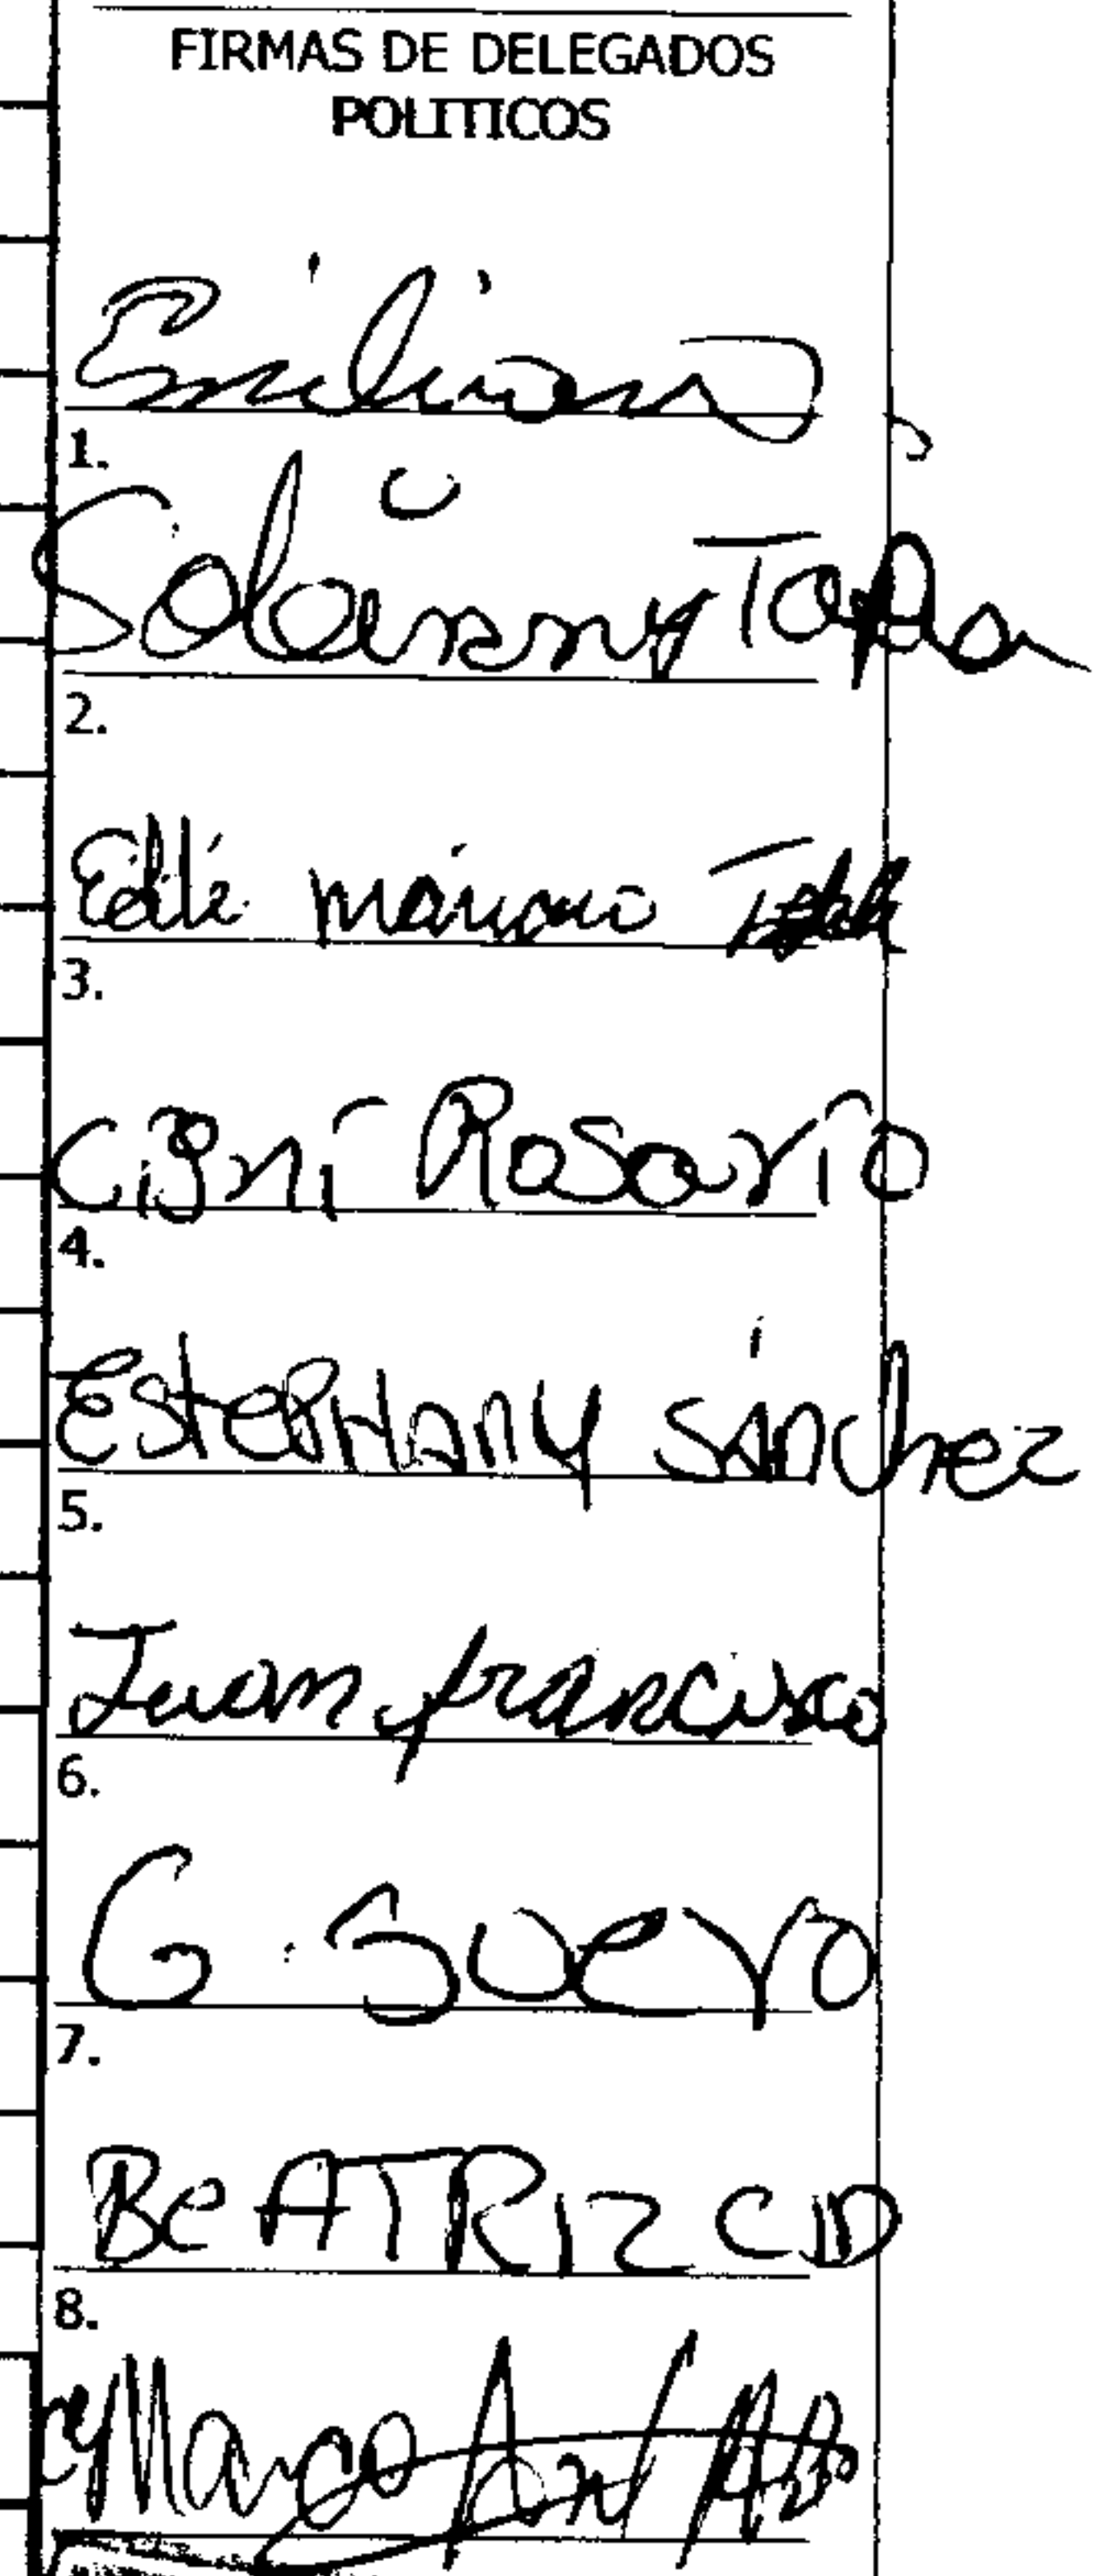 FIRMAS DE DELEGADOS
POLITICOS
Emiliano
1.
Tapia
2.
mariano
3.
Rosario
4.
EstePHany Sánchez
5.
Juan francisco
6.
G. Suero
7.
BeATRIZ CID
8.
Marco